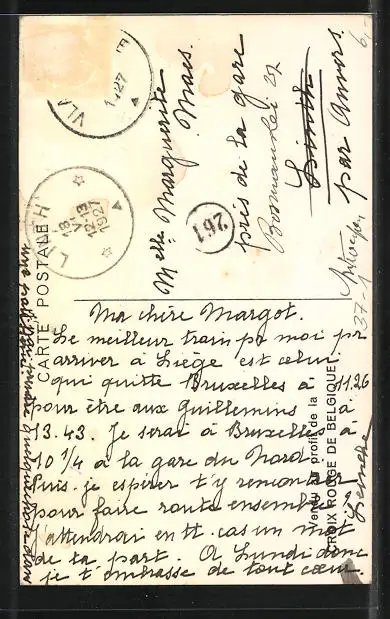 CARTE POSTALE
Melle Marguerite
Maes.
près de la gare
Linth
par Anvers.
261
VLA
27
LINTH
18
VI
12-13
1927
Ma chère Margot.
Le meilleur train pr moi pr
arriver à Liège est celui
qui quitte Bruxelles à 11.26
pour être aux Guillemins à
13.43. Je serai à Bruxelles à
10 1/4 à la gare du Nord.
Puis-je espérer t'y rencontrer
pour faire route ensemble?
J'attendrai en tt. cas un mot
de ta part. A Lundi donc
je t'embrasse de tout cœur.
Vendu au profit de la
CROIX ROUGE DE BELGIQUE